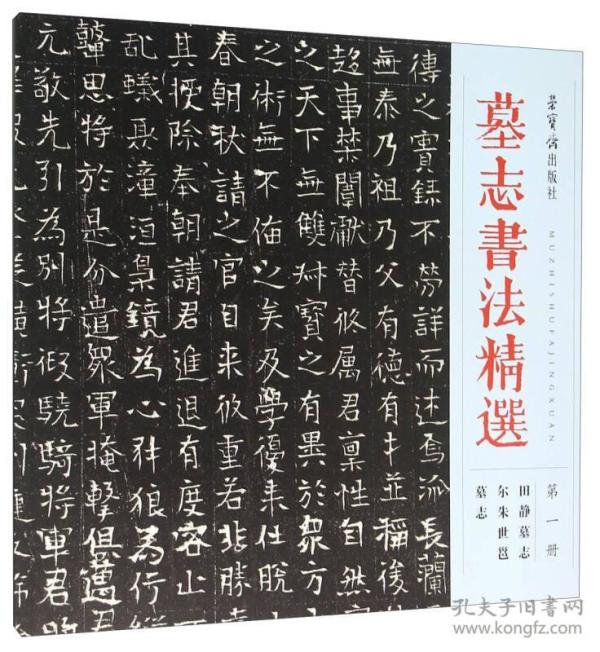 荣宝斋出版社
墓志書法精選
MUZHISHUFAJINGXUAN
第一册
田静墓志
尔朱世邕
墓志
傳之實錄不勞詳而述焉派長蘭
無泰乃祖乃父有德有牛並稱後
事禁闈獻替攸属君稟性自然
之天下無雙之有異於衆方
之術無不俻之矣及學優来仕脫
春朝秋請之官自来攸重若非勝
其授除奉朝請君進退有度容止
乱蟻聚漳洹梟鏡為心犲狼為行
思將於是分遣衆軍掩擊俱
元敬先引為別將假驍騎將軍君
孔夫子旧书网
www.kongfz.com